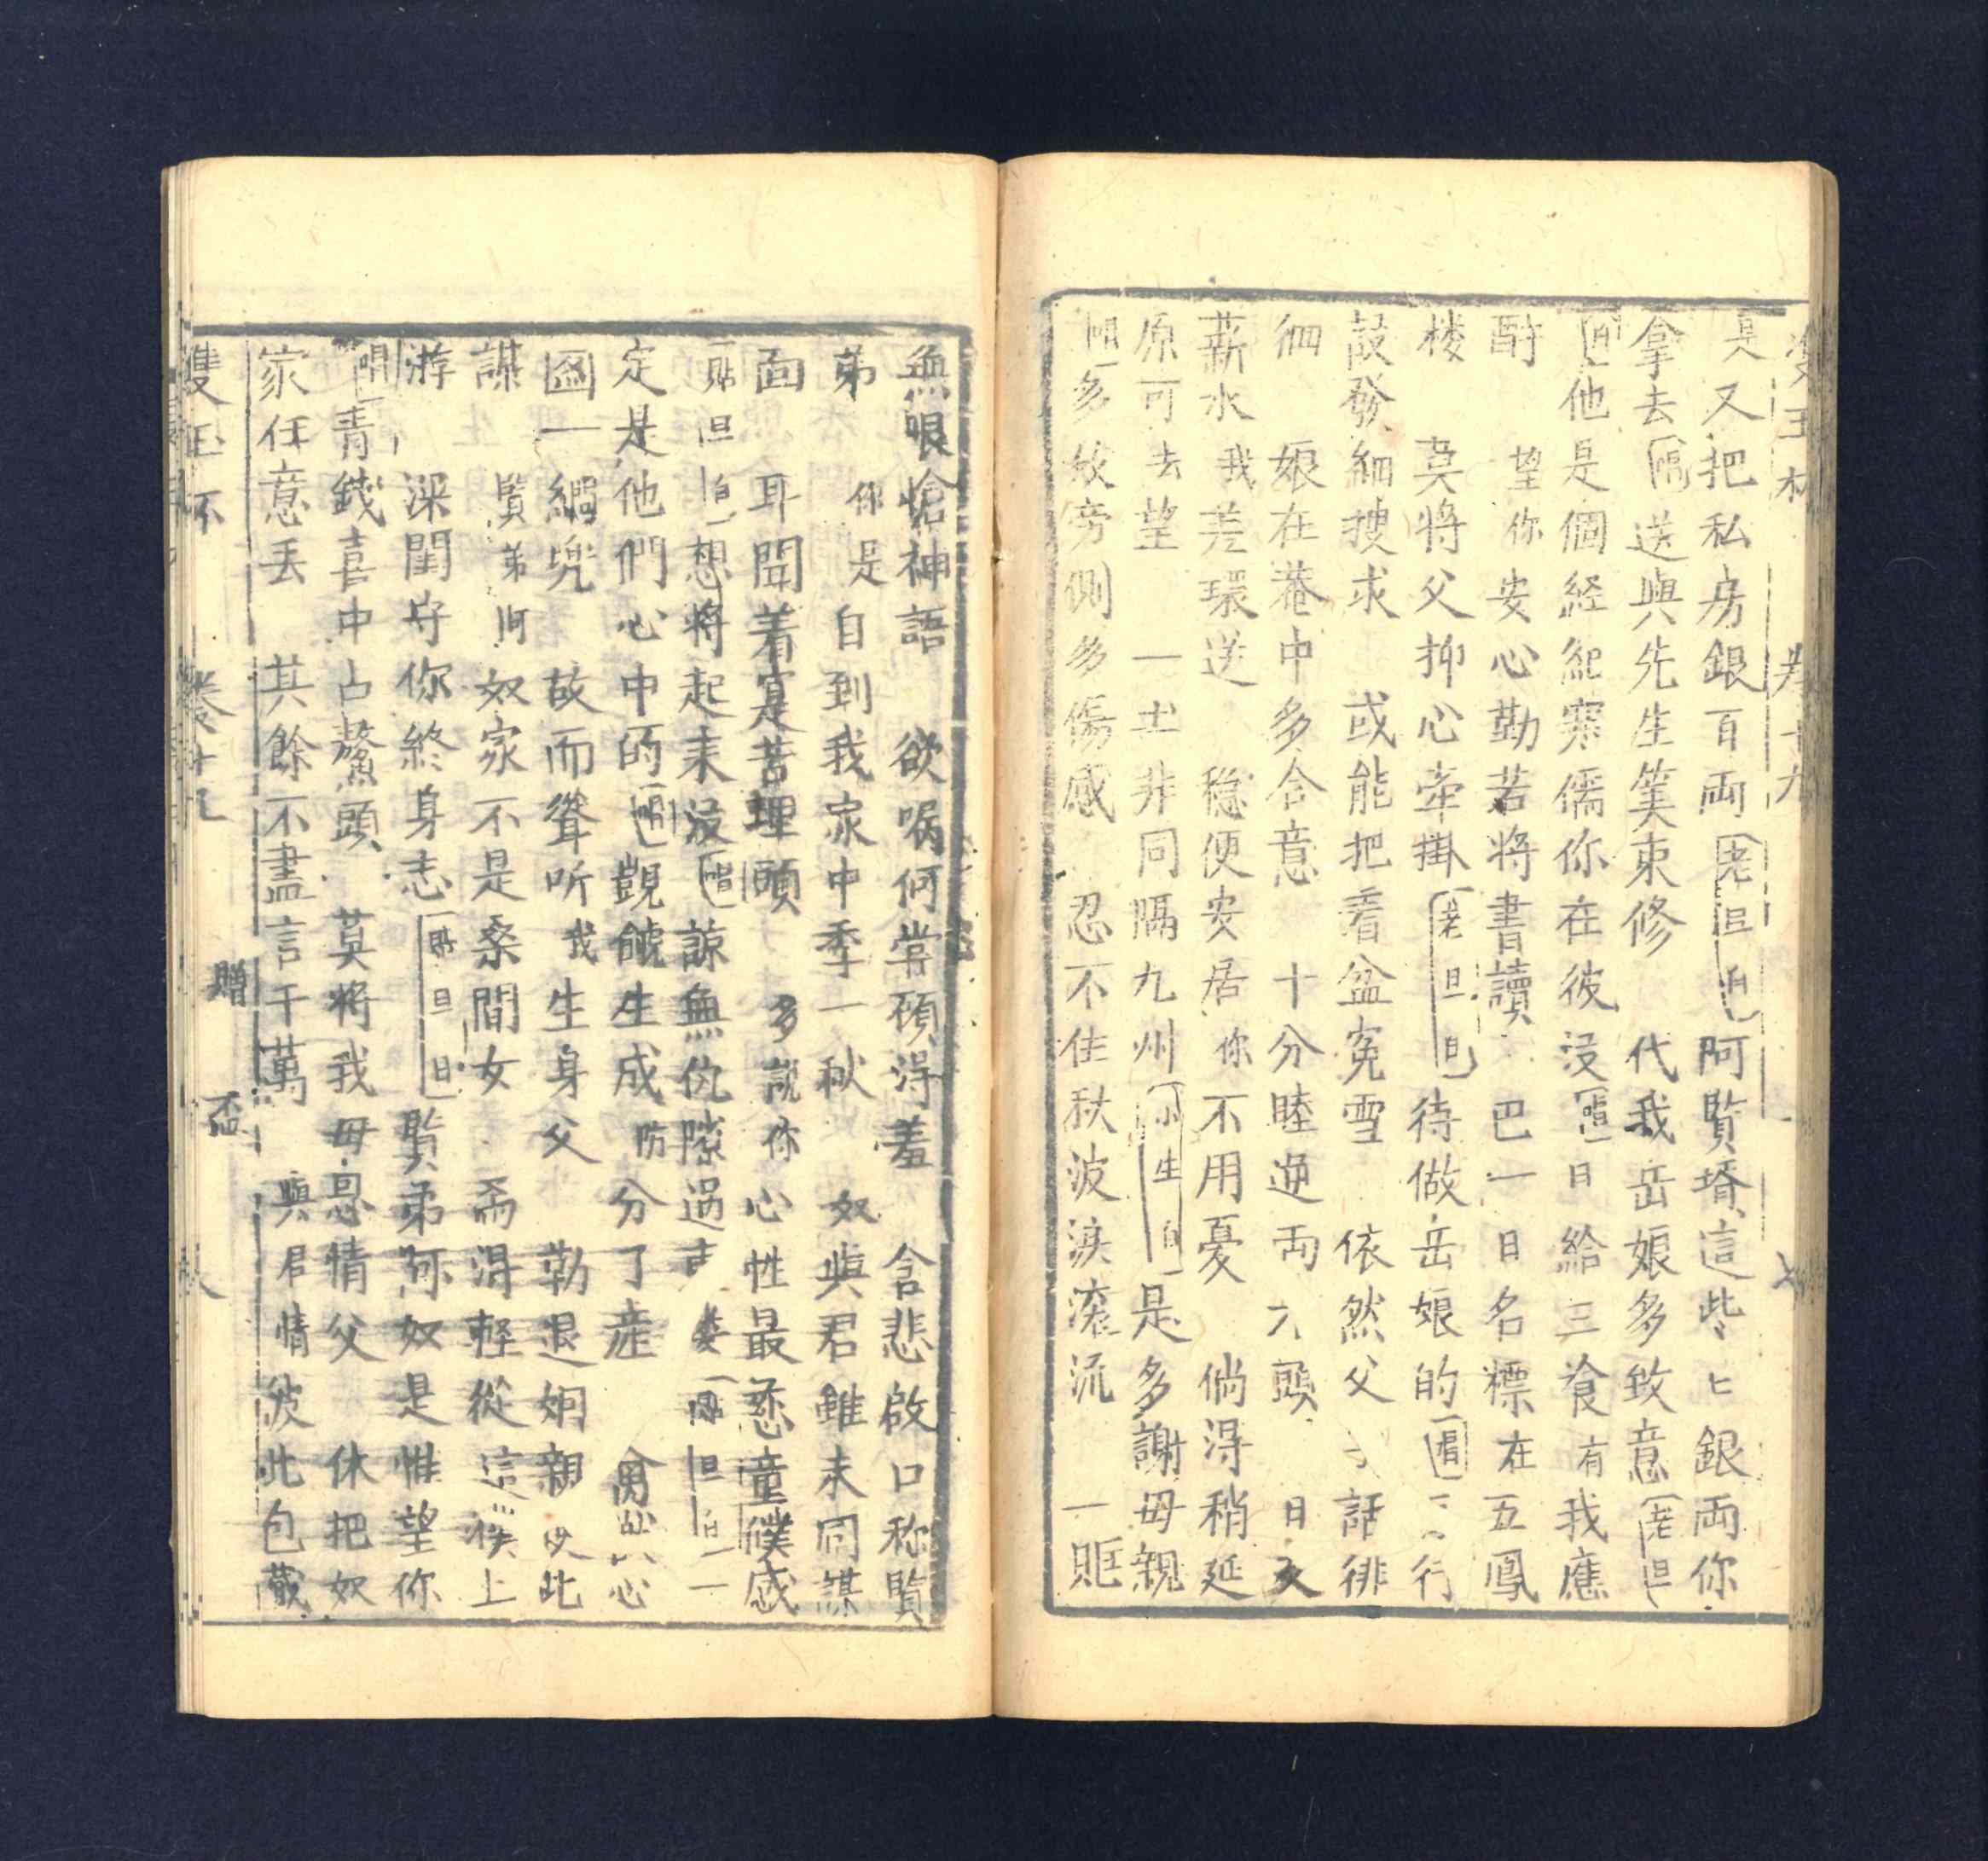 又把私房銀百両 老旦白 阿賢壻這些匕銀両你
拿去 唱 送與先生筭束修 代我岳娘多致意 老旦
白 他是個経紀寒儒你在彼没 唱 日給三飡有我應
酧 望你安心勤若將書讀 巴一日名標在五鳳
楼 莫将父抑心牽掛 老旦白 待做岳娘的 唱 行
鼓發細搜求 或能把看盆寃雪 依然父 話徘
徊 娘在巷中多合意 十分睦逆両 頭 日
薪水我差環送 穏便安居你不用憂 倘得稍延
原可去望 一 井同隔九州 小生白 是多謝母親
唱 多故旁側多傷感 忍不住秋波淚滾流 一
無哏愴神語 欲嘱何嘗頋淂羞 含悲啟口称賢
弟 你是自到我家中季一秋 奴與君雖未同謀
面 耳聞着寔苦埋頭 多説你心性最慈童僕感
貼旦白 想將起来没 唱 諒無仇隙過
定是他們心中的 唱 覬觎生成防分了産 心
圗一綱兜 故而聳听我生身父 勒退姻親 此
謀 賢弟阿奴家不是桑間女 焉淂軽從這 上
游 深閨守你終身志 貼旦白 賢弟阿奴是惟望你
唱 青錢喜中占鰲頭 莫将我母恩情父 休把奴
家任意丢 其餘不盡言千萬 與君情彼此包藏
雙玉杯 卷十九 贈盃